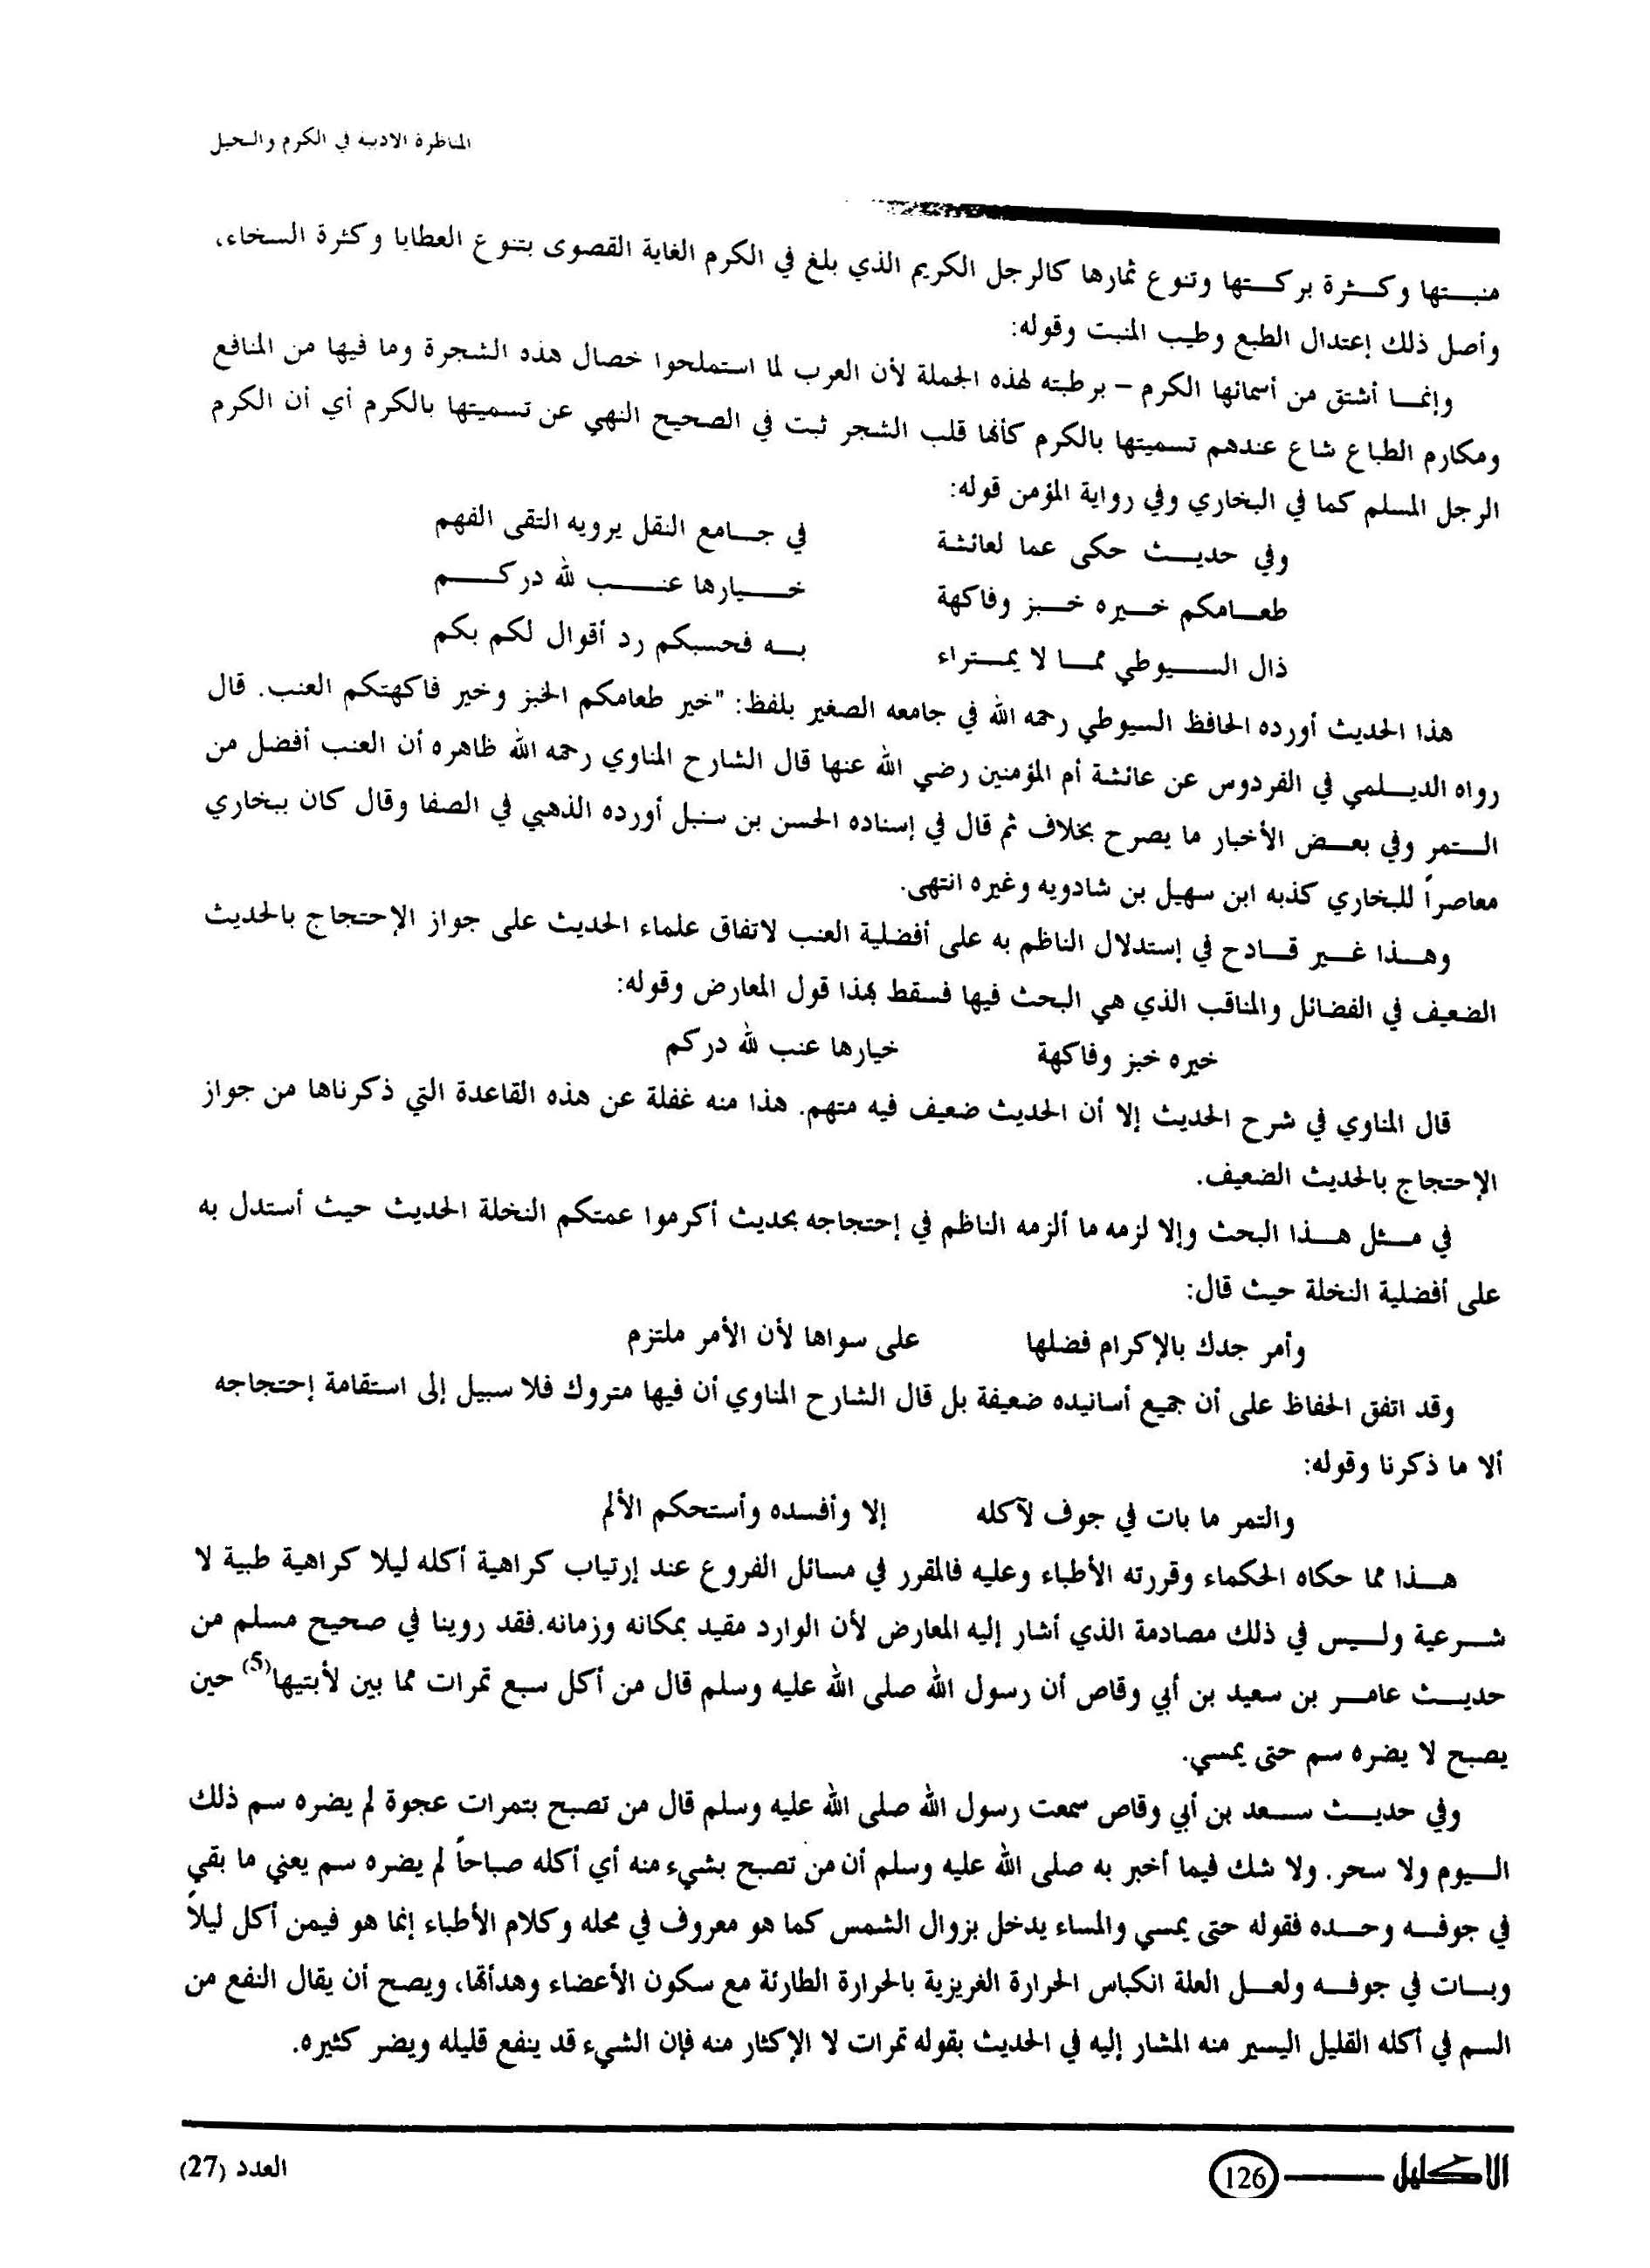 المناظرة الادبية في الكرم والنخيل
منبتها وكثرة بركتها وتنوع ثمارها كالرجل الكريم الذي بلغ في الكرم الغاية القصوى بتنوع العطايا وكثرة السخاء،
وأصل ذلك إعتدال الطبع وطيب المنبت وقوله:
وإنما أشتق من أسمائها الكرم – برطبته لهذه الجملة لأن العرب لما استملحوا خصال هذه الشجرة وما فيها من المنافع
ومكارم الطباع شاع عندهم تسميتها بالكرم كأنها قلب الشجر ثبت في الصحيح النهي عن تسميتها بالكرم أي أن الكرم
الرجل المسلم كما في البخاري وفي رواية المؤمن قوله:
وفي حديث حكى عما لعائشة في جامع النقل يرويه التقى الفهم
طعامكم خيره خبز وفاكهة خيارها عنب لله دركم
ذال السيوطي مما لا يمتراء به فحسبكم رد أقوال لكم بكم
هذا الحديث أورده الحافظ السيوطي رحمه الله في جامعه الصغير بلفظ: "خير طعامكم الخبز وخير فاكهتكم العنب. قال
رواه الديلمي في الفردوس عن عائشة أم المؤمنين رضي الله عنها قال الشارح المناوي رحمه الله ظاهره أن العنب أفضل من
التمر وفي بعض الأخبار ما يصرح بخلاف ثم قال في إسناده الحسن بن سنبل أورده الذهبي في الصفا وقال كان ببخاري
معاصراً للبخاري كذبه ابن سهيل بن شادويه وغيره انتهى.
وهذا غير قادح في إستدلال الناظم به على أفضلية العنب لاتفاق علماء الحديث على جواز الإحتجاج بالحديث
الضعيف في الفضائل والمناقب الذي هي البحث فيها فسقط بهذا قول المعارض وقوله:
خيره خبز وفاكهة خيارها عنب لله دركم
قال المناوي في شرح الحديث إلا أن الحديث ضعيف فيه متهم. هذا منه غفلة عن هذه القاعدة التي ذكرناها من جواز
الإحتجاج بالحديث الضعيف.
في مثل هذا البحث وإلا لزمه ما ألزمه الناظم في إحتجاجه بحديث أكرموا عمتكم النخلة الحديث حيث أستدل به
على أفضلية النخلة حيث قال:
وأمر جدك بالإكرام فضلها على سواها لأن الأمر ملتزم
وقد اتفق الحفاظ على أن جميع أسانيده ضعيفة بل قال الشارح المناوي أن فيها متروك فلا سبيل إلى استقامة إحتجاجه
ألا ما ذكرنا وقوله:
والتمر ما بات في جوف لآكله إلا وأفسده وأستحكم الألم
هذا مما حكاه الحكماء وقررته الأطباء وعليه فالمقرر في مسائل الفروع عند إرتياب كراهية أكله ليلا كراهية طبية لا
شرعية وليس في ذلك مصادمة الذي أشار إليه المعارض لأن الوارد مقيد بمكانه وزمانه.فقد روينا في صحيح مسلم من
حديث عامر بن سعيد بن أبي وقاص أن رسول الله صلى الله عليه وسلم قال من أكل سبع تمرات مما بين لأبتيها(5) حين
يصبح لا يضره سم حتى يمسي.
وفي حديث سعد بن أبي وقاص سمعت رسول الله صلى الله عليه وسلم قال من تصبح بتمرات عجوة لم يضره سم ذلك
اليوم ولا سحر. ولا شك فيما أخبر به صلى الله عليه وسلم أن من تصبح بشيء منه أي أكله صباحاً لم يضره سم يعني ما بقي
في جوفه وحده فقوله حتى يمسي والمساء يدخل بزوال الشمس كما هو معروف في محله وكلام الأطباء إنما هو فيمن أكل ليلاً
وبات في جوفه ولعل العلة انكباس الحرارة الغريزية بالحرارة الطارئة مع سكون الأعضاء وهدأتها، ويصح أن يقال النفع من
السم في أكله القليل اليسير منه المشار إليه في الحديث بقوله تمرات لا الإكثار منه فإن الشيء قد ينفع قليله ويضر كثيره.
الاكليل 126 العدد (27)